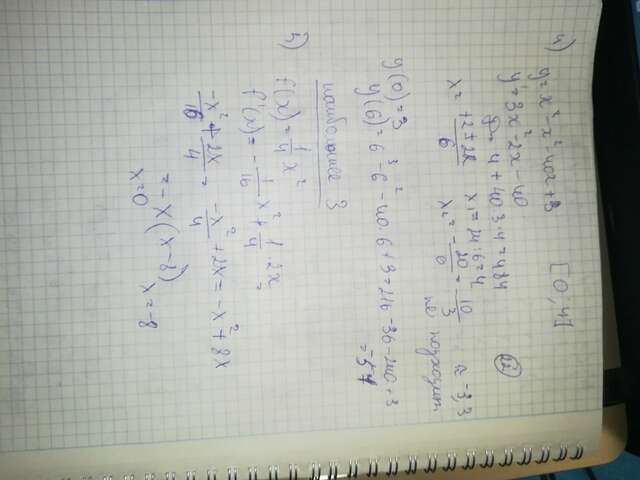 4) y = x³ - x² - 40x + 3 [0; 4]
y' = 3x² - 2x - 40
D = 4 + 40·3·4 = 484
x = +2 ± 22 / 6 x₁ = 24 : 6 = 4
x₂ = -20 / 6 = -10 / 3 ≈ -3,3
не подходит
y(0) = 3
y(6) = 6³ - 6² - 40·6 + 3 = 216 - 36 - 240 + 3
= -57
наибольшее 3
5) f(x) = 1/4 x²
f'(x) = -1/16 x² + 1/4 · 2x =
-x²/16 + 2x/4 = -x²/4 + 2x = -x² + 8x
= -x(x-8)
x=0 x=-8